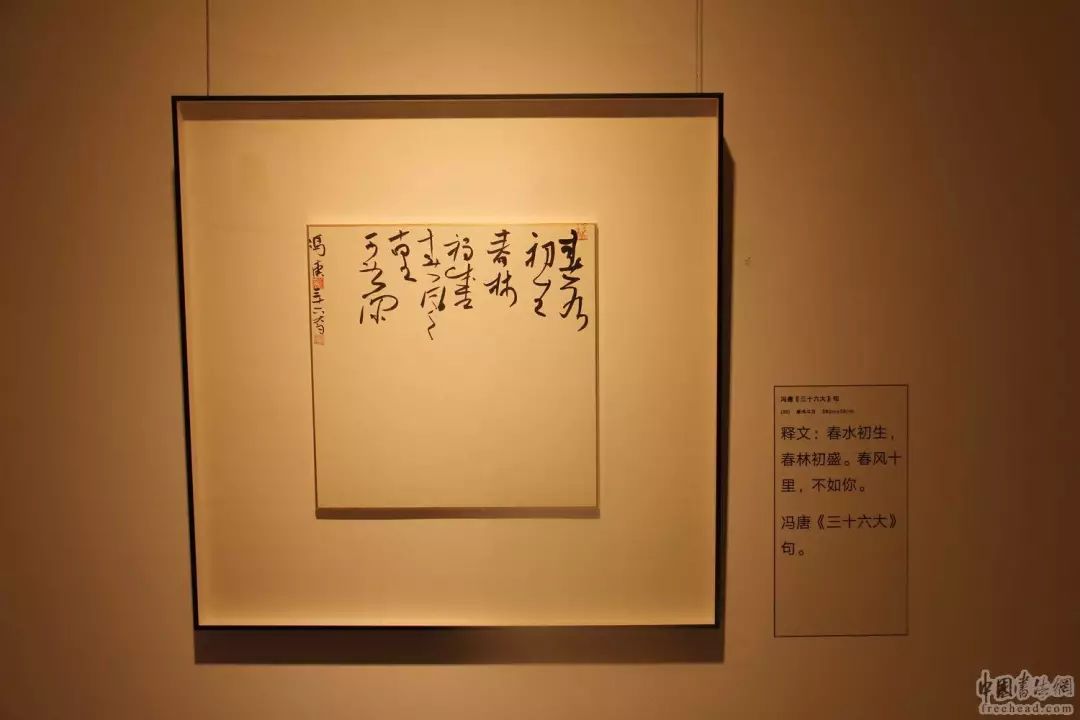 春水
初生
春林
初盛
里
不如你
冯唐
冯唐《三十六大》句
释文：春水初生，
春林初盛。春风十
里，不如你。
冯唐《三十六大》
句。
中国书法網
freehead.com